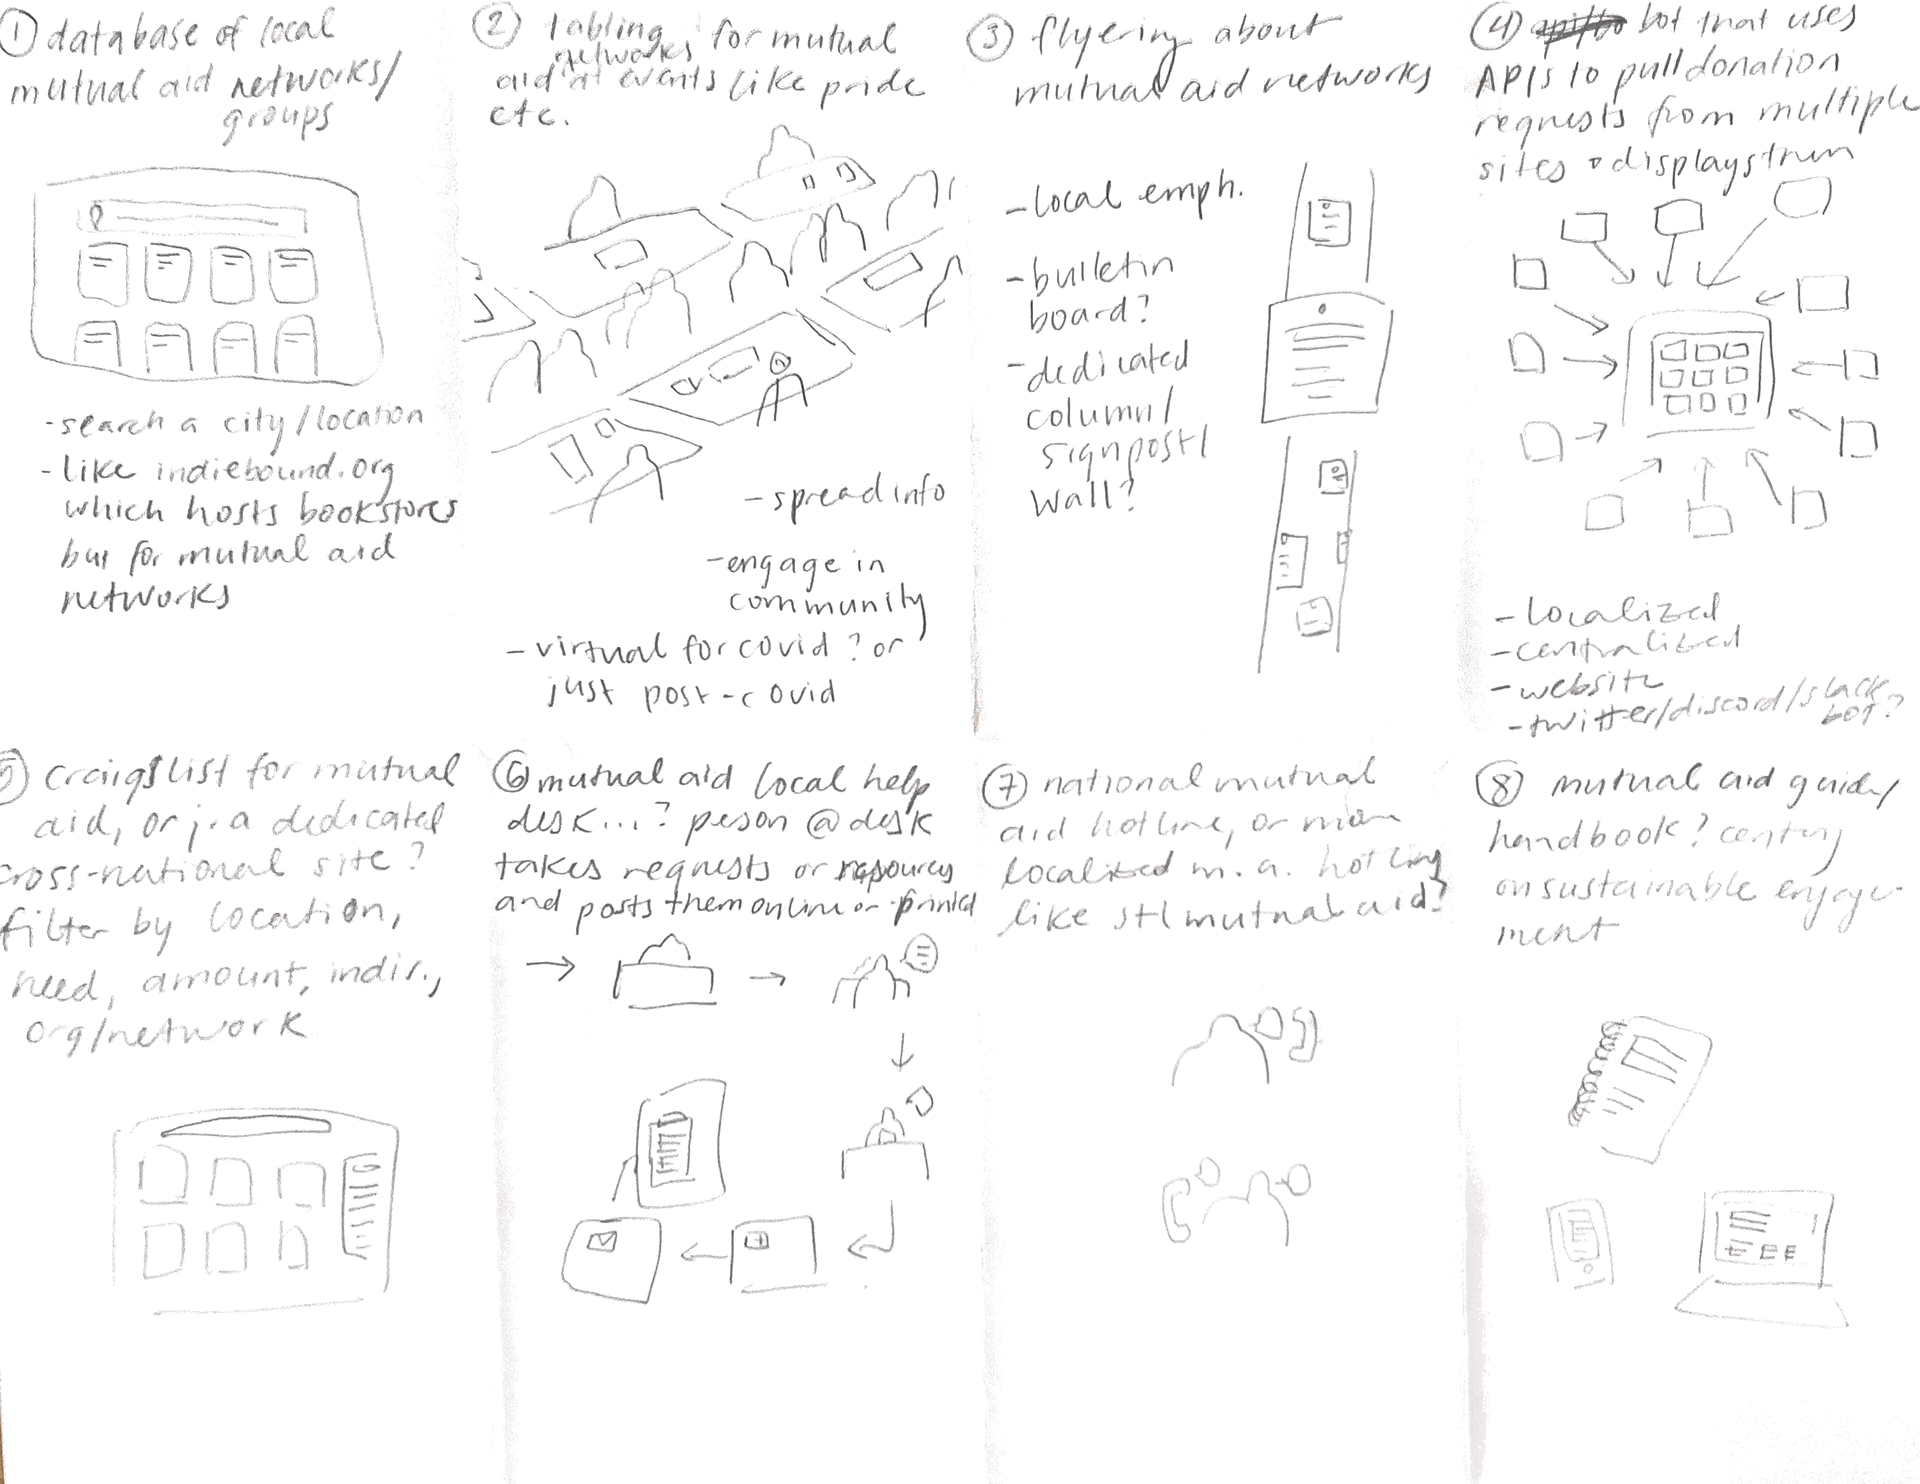 ① database of local
mutual aid networks/
groups
- search a city/location
- like indiebound.org
which hosts bookstores
but for mutual aid
networks
② tabling for mutual
networks
aid at events like pride
etc.
- spread info
- engage in
community
- virtual for covid? or
just post-covid
③ flyering about
mutual aid networks
- local emph.
- bulletin
board?
- dedicated
column/
signpost/
wall?
④ bot that uses
APIs to pull donation
requests from multiple
sites + displays them
- localized
- centralized
- website
- twitter/discord/slack
bot?
5 craigslist for mutual
aid, or j. a dedicated
cross-national site?
filter by location,
need, amount, indiv.,
org/network
⑥ mutual aid local help
desk...? person @ desk
takes requests or resources
and posts them online or printed
⑦ national mutual
aid hotline, or more
localized m. a. hotlines
like stl mutual aid?
⑧ mutual aid guide/
handbook?
on sustainable engage-
ment